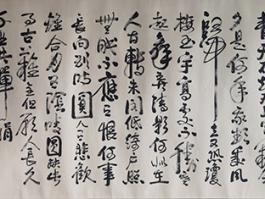 夕是何年我欲乘風
歸去又恐瓊
樓玉宇高處不勝
起舞弄清影何似在
人間轉朱閣低綺戶照
無眠不應有恨何事
長向別時圓人有悲歡
離合月有陰晴圓缺此
事古難全但願人長久
千里共嬋娟